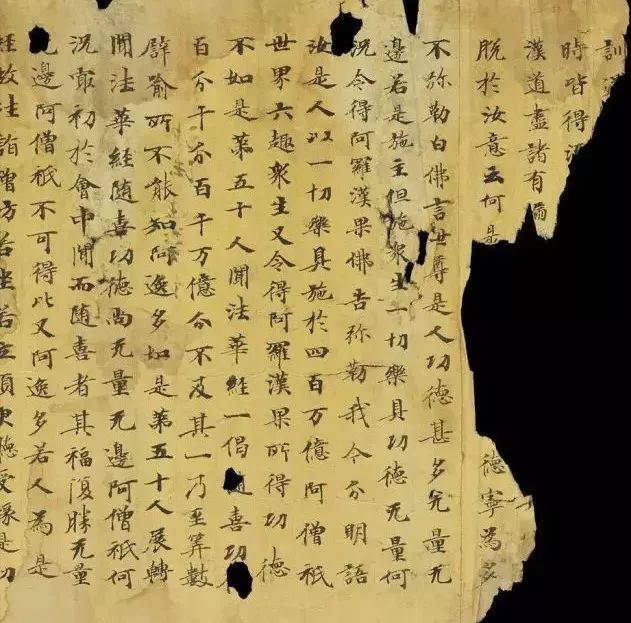 訓
時皆得
漢道盡諸有
脫於汝意云何是德寧為多
不弥勒白佛言世尊是人功德甚多无量无
邊若是施主但施衆生一切樂具功德无量何
况令得阿羅漢果佛告弥勒我今分明語
汝是人以一切樂具施於四百万億阿僧祇
世界六趣衆生又令得阿羅漢果所得功德
不如是第五十人聞法華経一偈喜功
百分千分百千万億分不及其一乃至筭數
譬喻所不能知阿逸多如是第五十人展轉
聞法華経随喜功德尚无量无邊阿僧祇何
况最初於會中聞而随喜者其福復勝无量
邊阿僧祇不可得比又阿逸多若人為是
経故往詣僧坊若坐若立須臾聽受緣是功